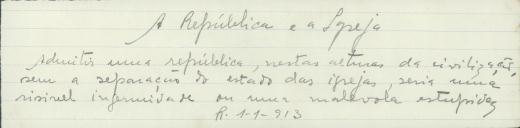 A República e a Igreja
Admitir uma república, nestas alturas da civilização,
sem a separação do estado das igrejas, seria uma
risivel ingenuidade ou uma malevola estupidez
R. 1-1-913